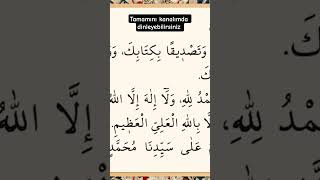 Tamamını kanalımda
dinleyebilirsiniz
وَتَصْدِيقًا بِكِتَابِكَ،
كَ.
مْدُ لِلّٰهِ، وَلَٓا إِلٰهَ إِلَّا اللهُ
إِلَّا بِاللهِ الْعَلِيِّ الْعَظِيمِ.
عَلٰى سَيِّدِنَا مُحَمَّدٍ